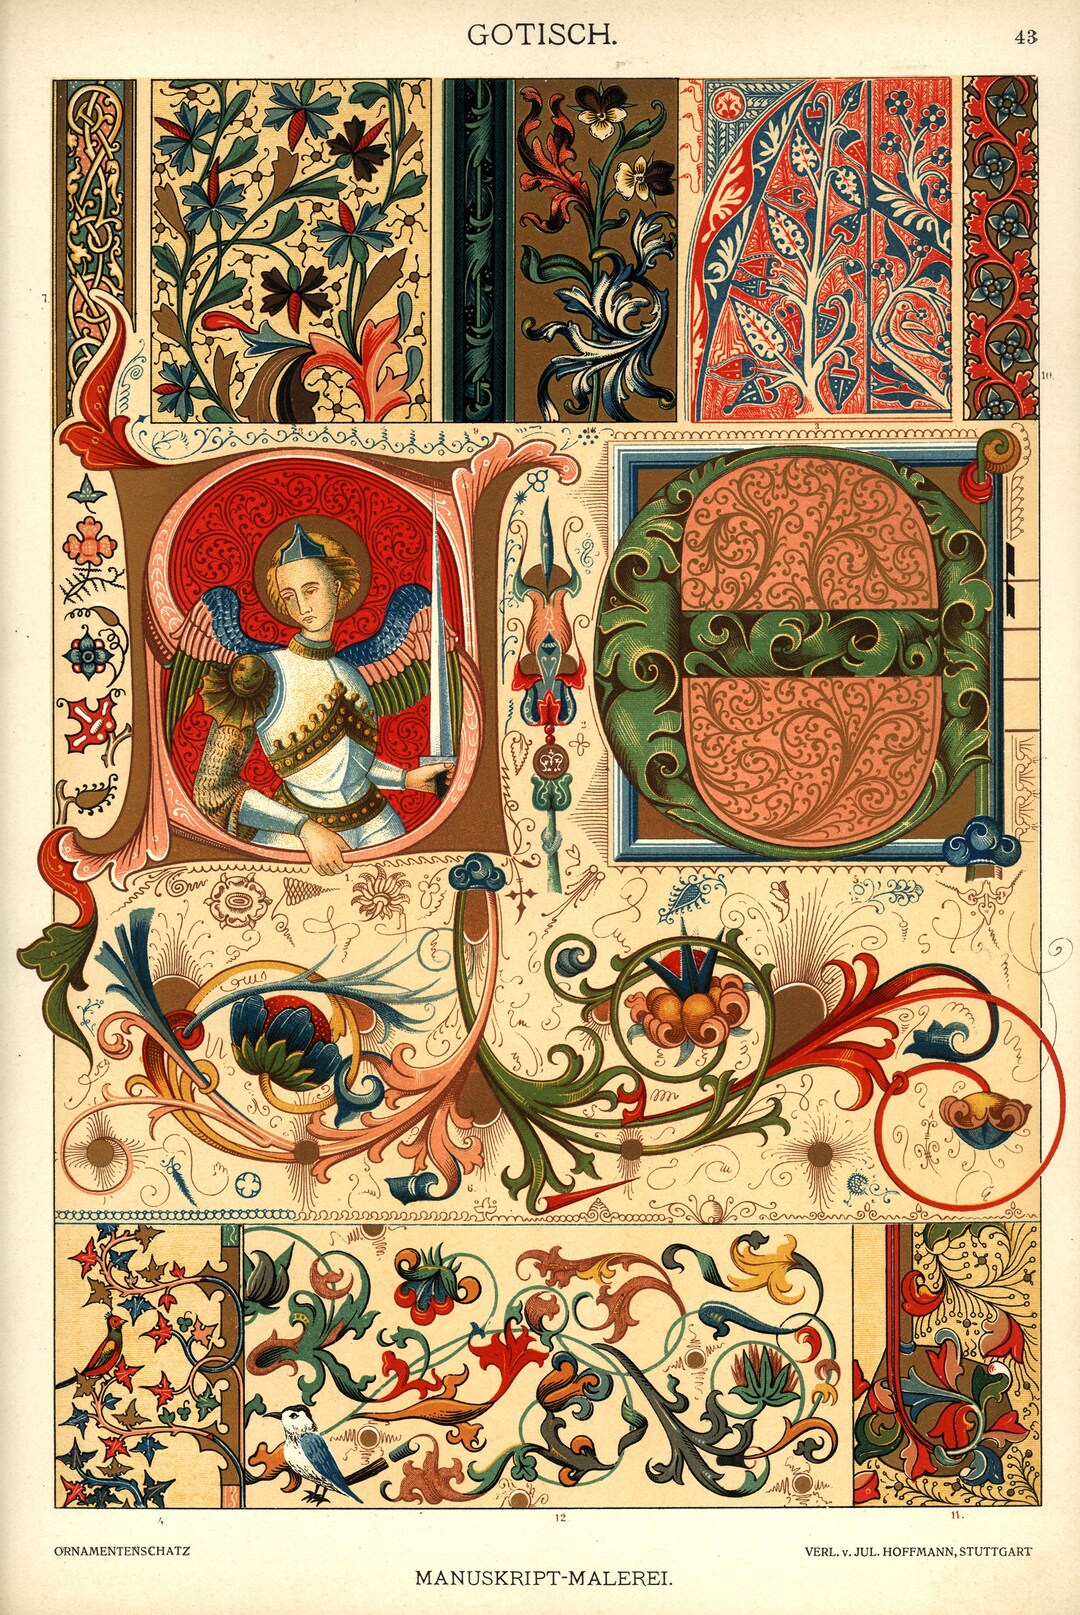 GOTISCH.
43
7.
8
9
3.
10.
4.
12
11.
ORNAMENTENSCHATZ
VERL. v. JUL. HOFFMANN, STUTTGART
MANUSKRIPT-MALEREI.